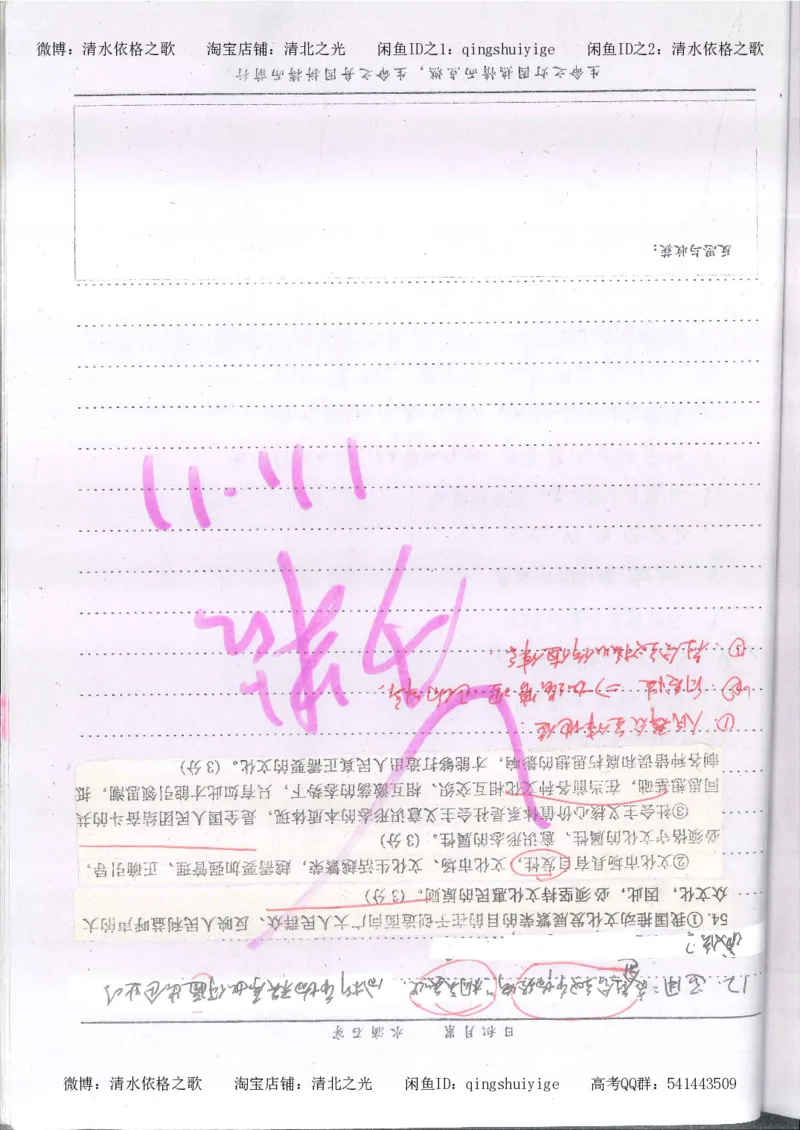 微博：清水依格之歌 淘宝店铺：清北之光 闲鱼ID之1：qingshuiyige 闲鱼ID之2：清水依格之歌
日积月累 水滴石穿
54.①我国推动文化发展繁荣的目的在于创造面向广大人民群众、反映人民利益呼声的大
众文化，因此，必须坚持文化惠民的原则。（3分）
②文化市场具有自发性，文化市场、文化生活越繁荣，越需要加强管理、正确引导，
必须格守文化的属性、意识形态的属性。（3分）
③社会主义核心价值体系是社会主义意识形态的本质体现，是全国人民团结奋斗的共
同思想基础，在当前各种文化相互交织、相互激荡的态势下，只有如此才能引领思潮，抵
制各种错误和腐朽思想的影响，才能够打造出人民真正需要的文化。（3分）
①人民群众主体地位
②自发性 ⇒ 加强管理
③社会主义核心价值体系
11.11
反思与收获：
生命之灯因热情而点燃，生命之舟因拼搏而前行
微博：清水依格之歌 淘宝店铺：清北之光 闲鱼ID：qingshuiyige 高考QQ群：541443509